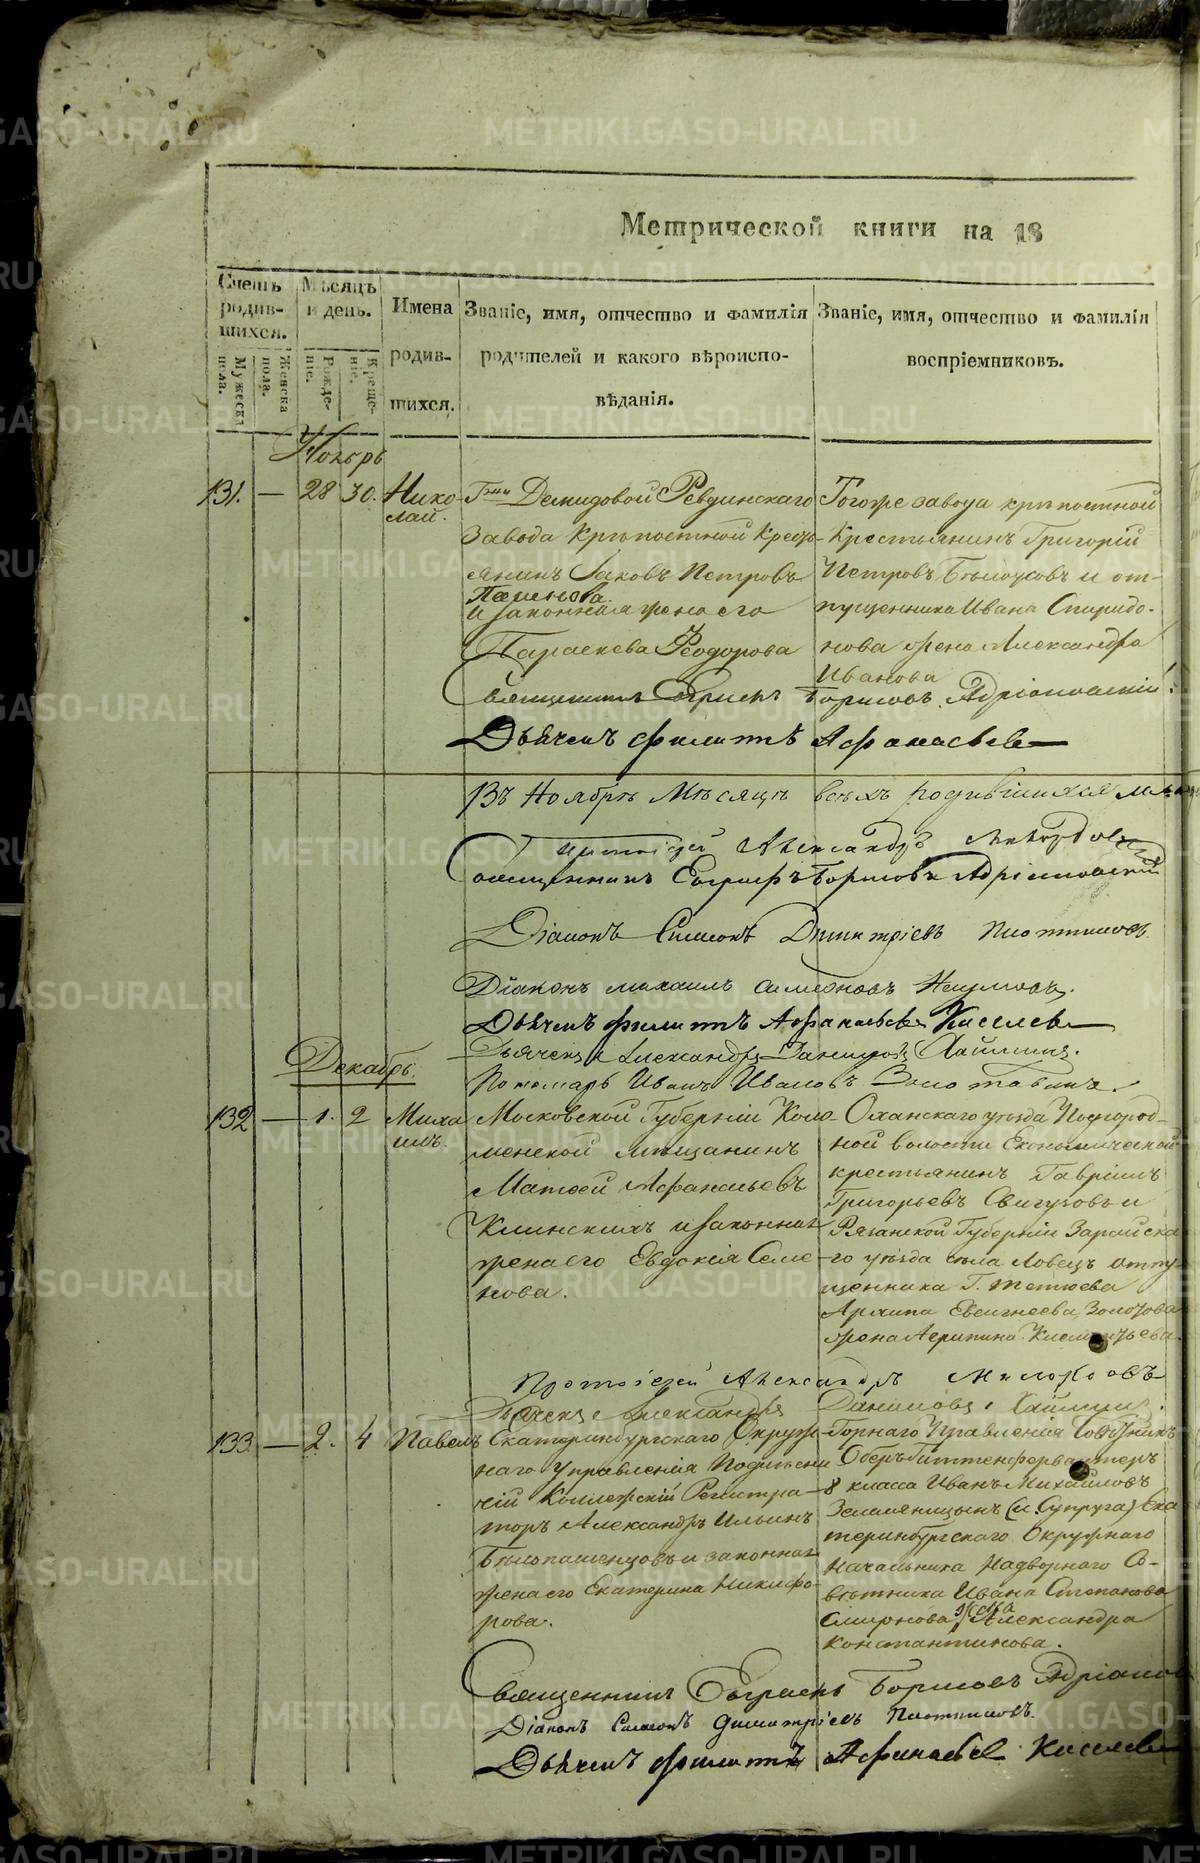 Метрической книги на 18
Счетъ родив-шихся.
Мужеска пола.
Женска пола.
Мѣсяцъ и день.
Рожде-ніе.
Креще-ніе.
Имена родив-шихся.
Званіе, имя, отчество и фамилія родителей и какого вѣроиспо-вѣданія.
Званіе, имя, отчество и фамилія воспріемниковъ.
Ноябрь
131. — 28 30. Нико-лай.
Гжи Демидовой Ревдинскаго
Завода Крѣпостной Кресть-
янинъ Іаковъ Петровъ
и законная жена его
Параскева Ѳеодорова
Тогоже завода крѣпостной
Крестьянинъ Григорій
Петровъ Бѣлоусовъ и от-
пущенника Ивана Спиридо-
нова жена Александра
Иванова
Священникъ Евграфъ Борисовъ Адріановскій
Дьячекъ Филиппъ Афанасьевъ
Въ Ноябрѣ Мѣсяцѣ всѣхъ родившихся
Протоіерей Александръ
Священникъ Евграфъ Борисовъ Адріановскій
Діаконъ Симеонъ Димитріевъ Плотниковъ
Діаконъ Михаилъ Симеоновъ Наумовъ.
Дьячекъ Филиппъ Афанасьевъ Киселев
Дьячекъ Александръ Даниловъ
Пономарь Иванъ Ивановъ Золотавинъ.
Декабрь.
132 — 1. 2 Миха-илъ.
Московской Губерніи Коло-
менской Мѣщанинъ
Матѳей Афанасьевъ
Клинскихъ и законная
жена его Евдокія Семе-
нова.
Оханскаго уѣзда Подгород-
ной волости Економической
крестьянинъ Гавріилъ
Григорьевъ и
Рязанской Губерніи Зарайска-
го уѣзда села Ловецъ отпу-
щенника Г.
Архипа Евсигнеева
жена Агрипина
Протоіерей Александръ
Дьячекъ Александръ Даниловъ
133. — 2. 4 Павелъ
Екатеринбургскаго Окруж-
наго Управленія
Коллежскій Регистра-
торъ Александръ Ильинъ
и законная
жена его Екатерина Никифо-
рова.
Горнаго Правленія Совѣтникъ
Оберъ Гиттенферваптеръ
8 класса Иванъ Михайловъ
Земляницынъ (и Супруга) Ека
теринбургскаго Окружнаго
Начальника Надворнаго Со-
вѣтника Ивана Степанова
Смирнова жена Александра
Константинова.
Священникъ Евграфъ Борисовъ
Діаконъ Симеонъ Димитріевъ Плотниковъ.
Дьячекъ Филиппъ Афанасьев Киселев
METRIKI.GASO-URAL.RU